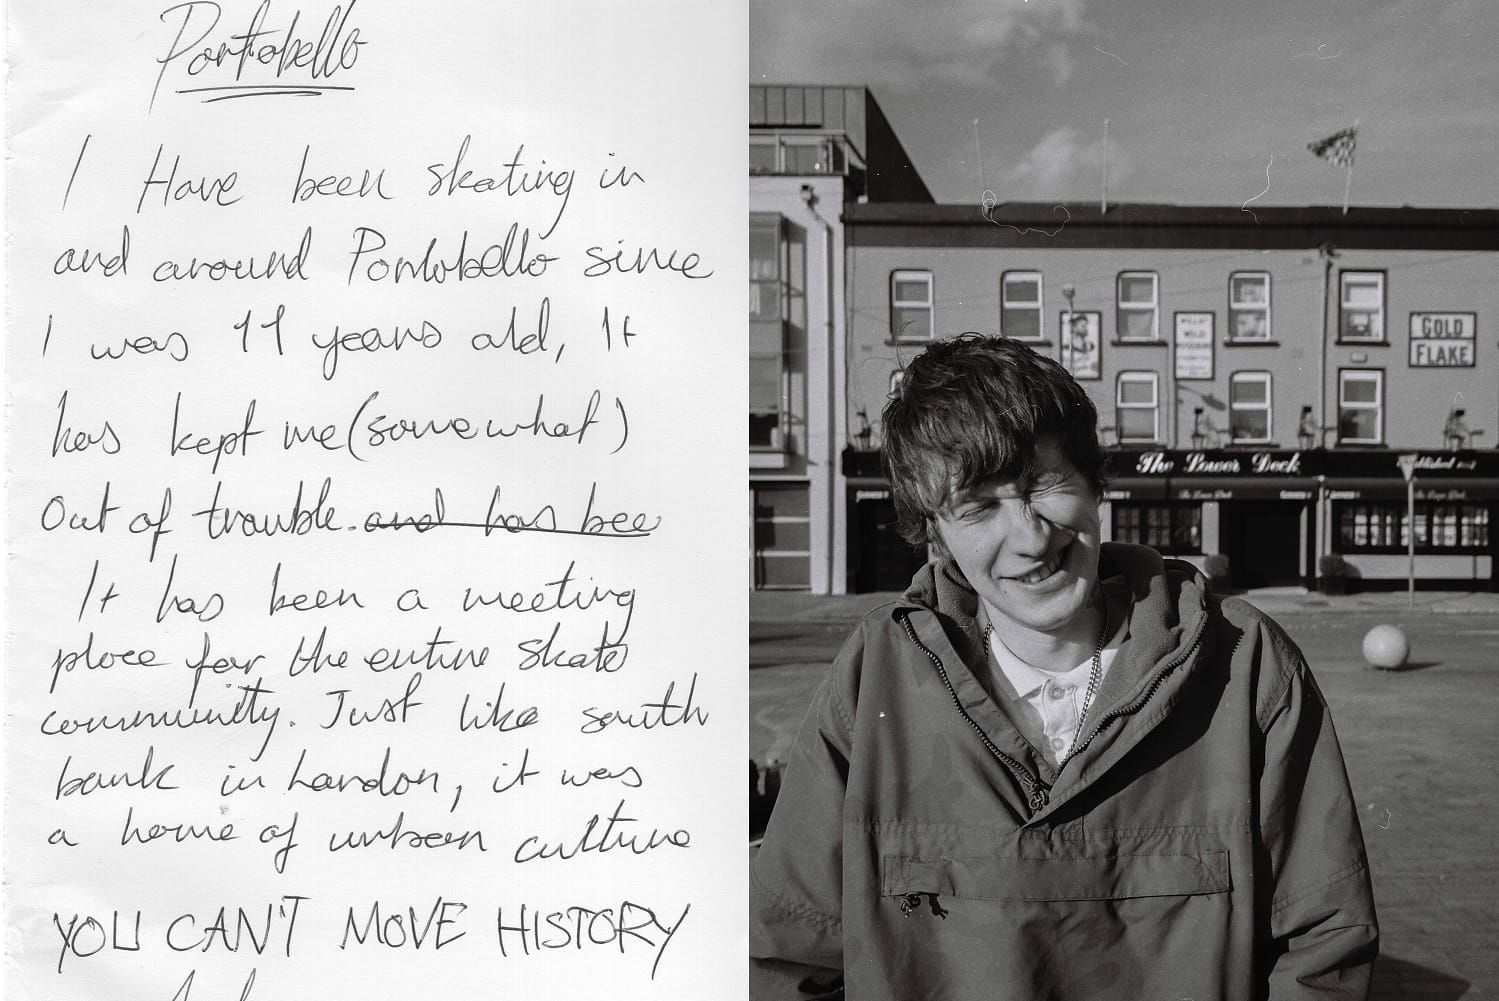 Portobello
I Have been skating in
and around Portobello since
I was 11 years old, It
has kept me (somewhat)
Out of trouble. and has bee
It has been a meeting
place for the entire skate
community. Just like south
bank in London, it was
a home of urban culture
YOU CAN'T MOVE HISTORY
GOLD
FLAKE
WILD
The Lower Deck
Established
The Lower Deck